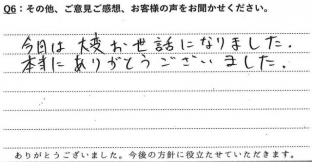 Q6：その他、ご意見ご感想、お客様の声をお聞かせください。
今日は大変お世話になりました.
本当にありがとうございました.
ありがとうございました。今後の方針に役立たせていただきます。